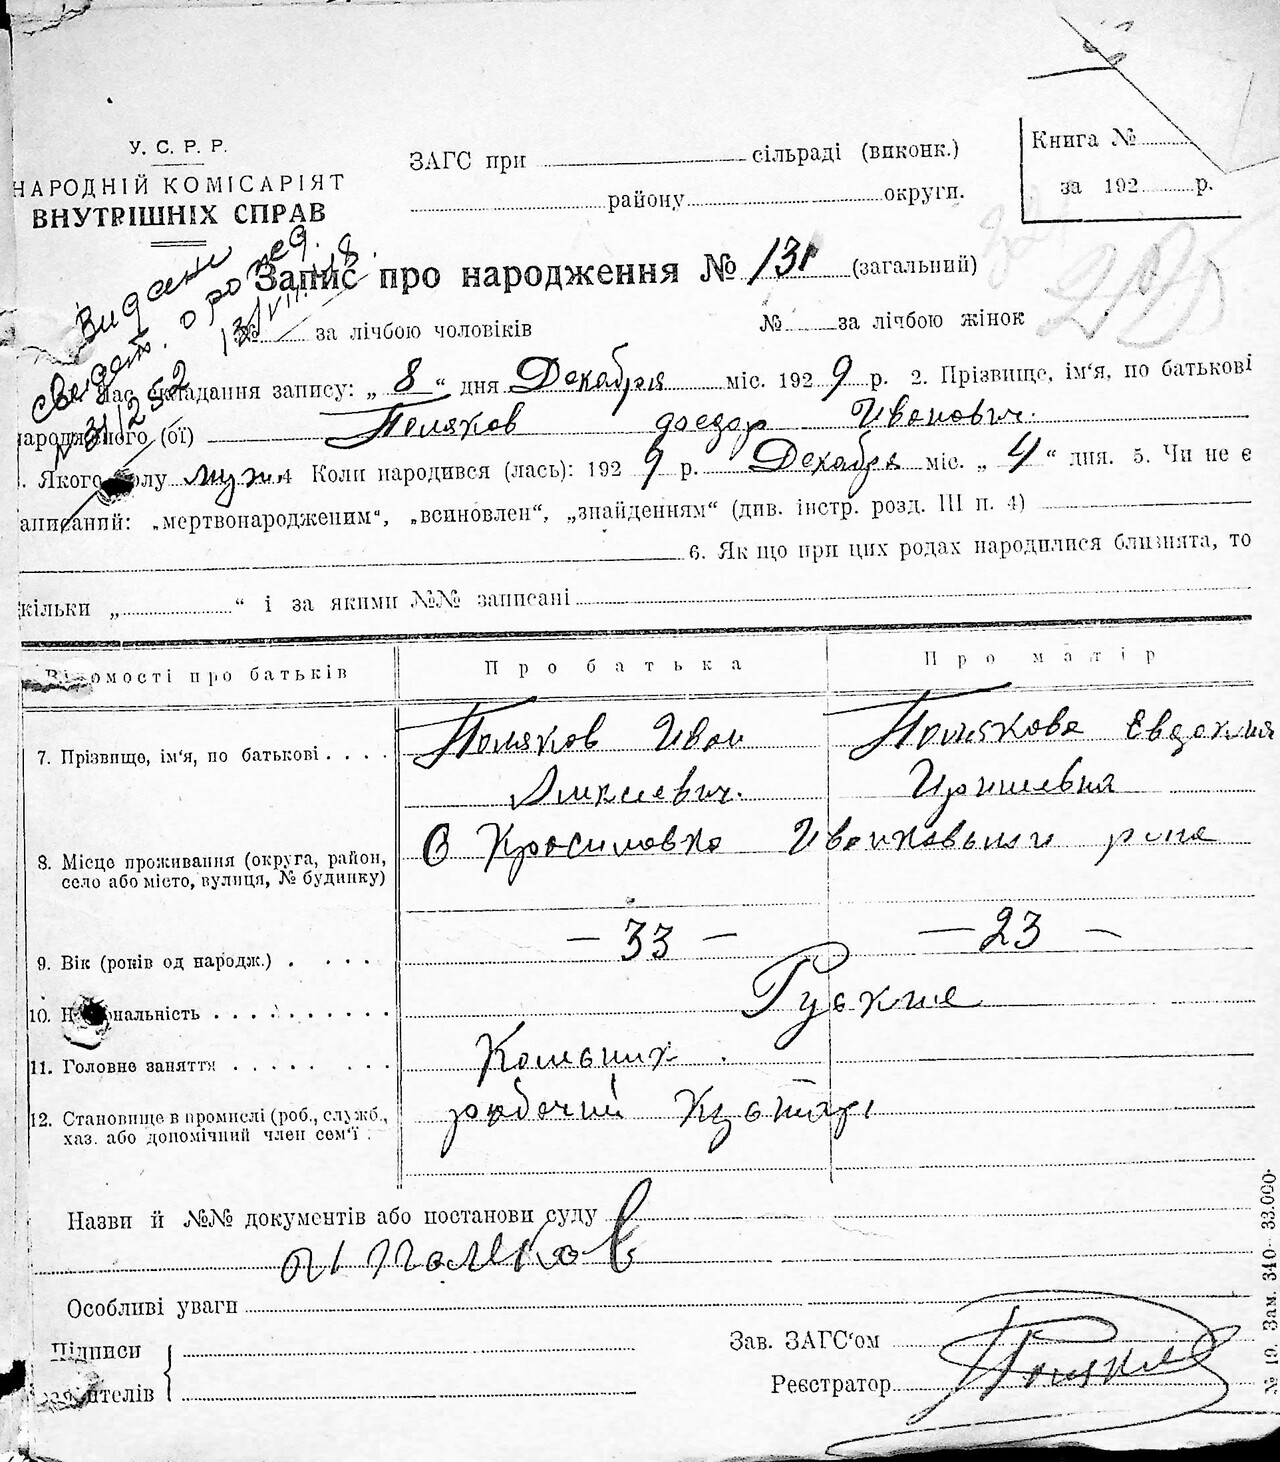 У. С. Р. Р.
НАРОДНІЙ КОМІСАРІЯТ
ВНУТРІШНІХ СПРАВ
ЗАГС при сільраді (виконк.)
району округи.
Книга №
за 192 р.
Видано
свидет. о рожд.
№ 31/252
Запис про народження № 131 (загальний)
№ за лічбою чоловіків № за лічбою жінок
час складання запису: „ 8 “ дня Декабря міс. 192 9 р. 2. Прізвище, ім'я, по батькові
народженого (ої) Поляков Федор Иванович.
. Якого полу муж. 4 Коли народився (лась): 192 9 р. Декабря міс. „ 4 “ дня. 5. Чи не є
записаний: „мертвонародженим“, „всиновлен“, „знайденням“ (див. інстр. розд. III п. 4)
6. Як що при цих родах народилися близнята, то
скільки „ “ і за якими №№ записані
Відомості про батьків Про батька Про матір
7. Прізвище, ім'я, по батькові . . . . Поляков Иван Полякова Евдокия
Алексеевич.
8. Місце проживання (округа, район, село або місто, вулиця, № будинку) С Красиловка Иванковский р-на
9. Вік (років од народж.) . . . . — 33 — — 23 —
10. Національність . . . . . . . . . . Руские
11. Головне заняття . . . . . . . .
12. Становище в промислі (роб., служб., рабочий Кустарі
хаз. або допомічний член сем'ї .
Назви й №№ документів або постанови суду
Поляков
Особливі уваги
Підписи
заявителів
Зав. ЗАГС'ом
Реєстратор Поляков
№ 19. Зам. 340—33.000.